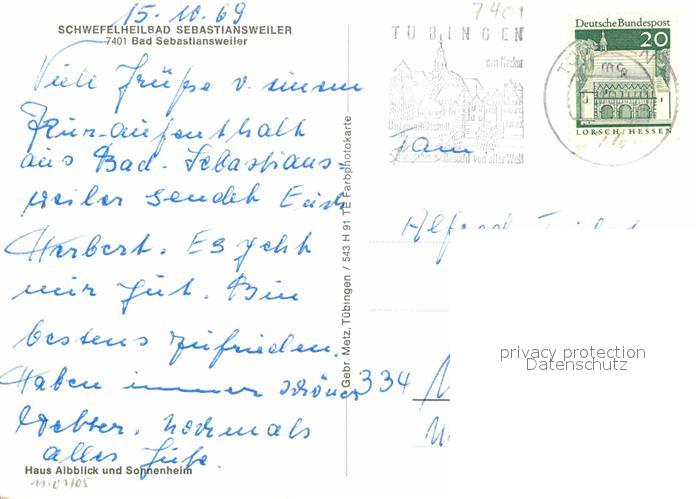 15.10.69
SCHWEFELHEILBAD SEBASTIANSWEILER
7401 Bad Sebastiansweiler
Viele Grüße v. einem
Kur-aufenthalt
aus Bad. Sebastians-
weiler sendet Euch
Herbert. Es geht
mir gut. Bin
bestens zufrieden.
Haben immer schönes
Wetter. Nochmals
alles Gute.
Haus Albblick und Sonnenheim
11.01/05
Gebr. Metz, Tübingen / 543 H 91 TE Farbphotokarte
7401
TÜBINGEN
am Neckar
Besucht von aller Welt
Deutsche Bundespost
20
LORSCH/HESSEN
Fam
Alfred
334
privacy protection
Datenschutz